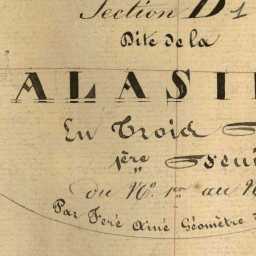 Section D 1
Dite de la
ALASI
En Troid
1ère Feui
du N°. 1er au N
Par Feré Ainé Géomètre